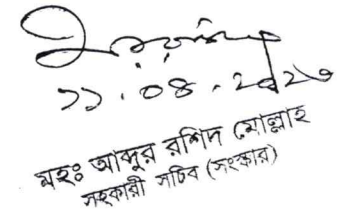 ১১.০৪.২০২৩
মহঃ আব্দুর রশিদ মোল্লাহ
সহকারী সচিব (সংস্কার)